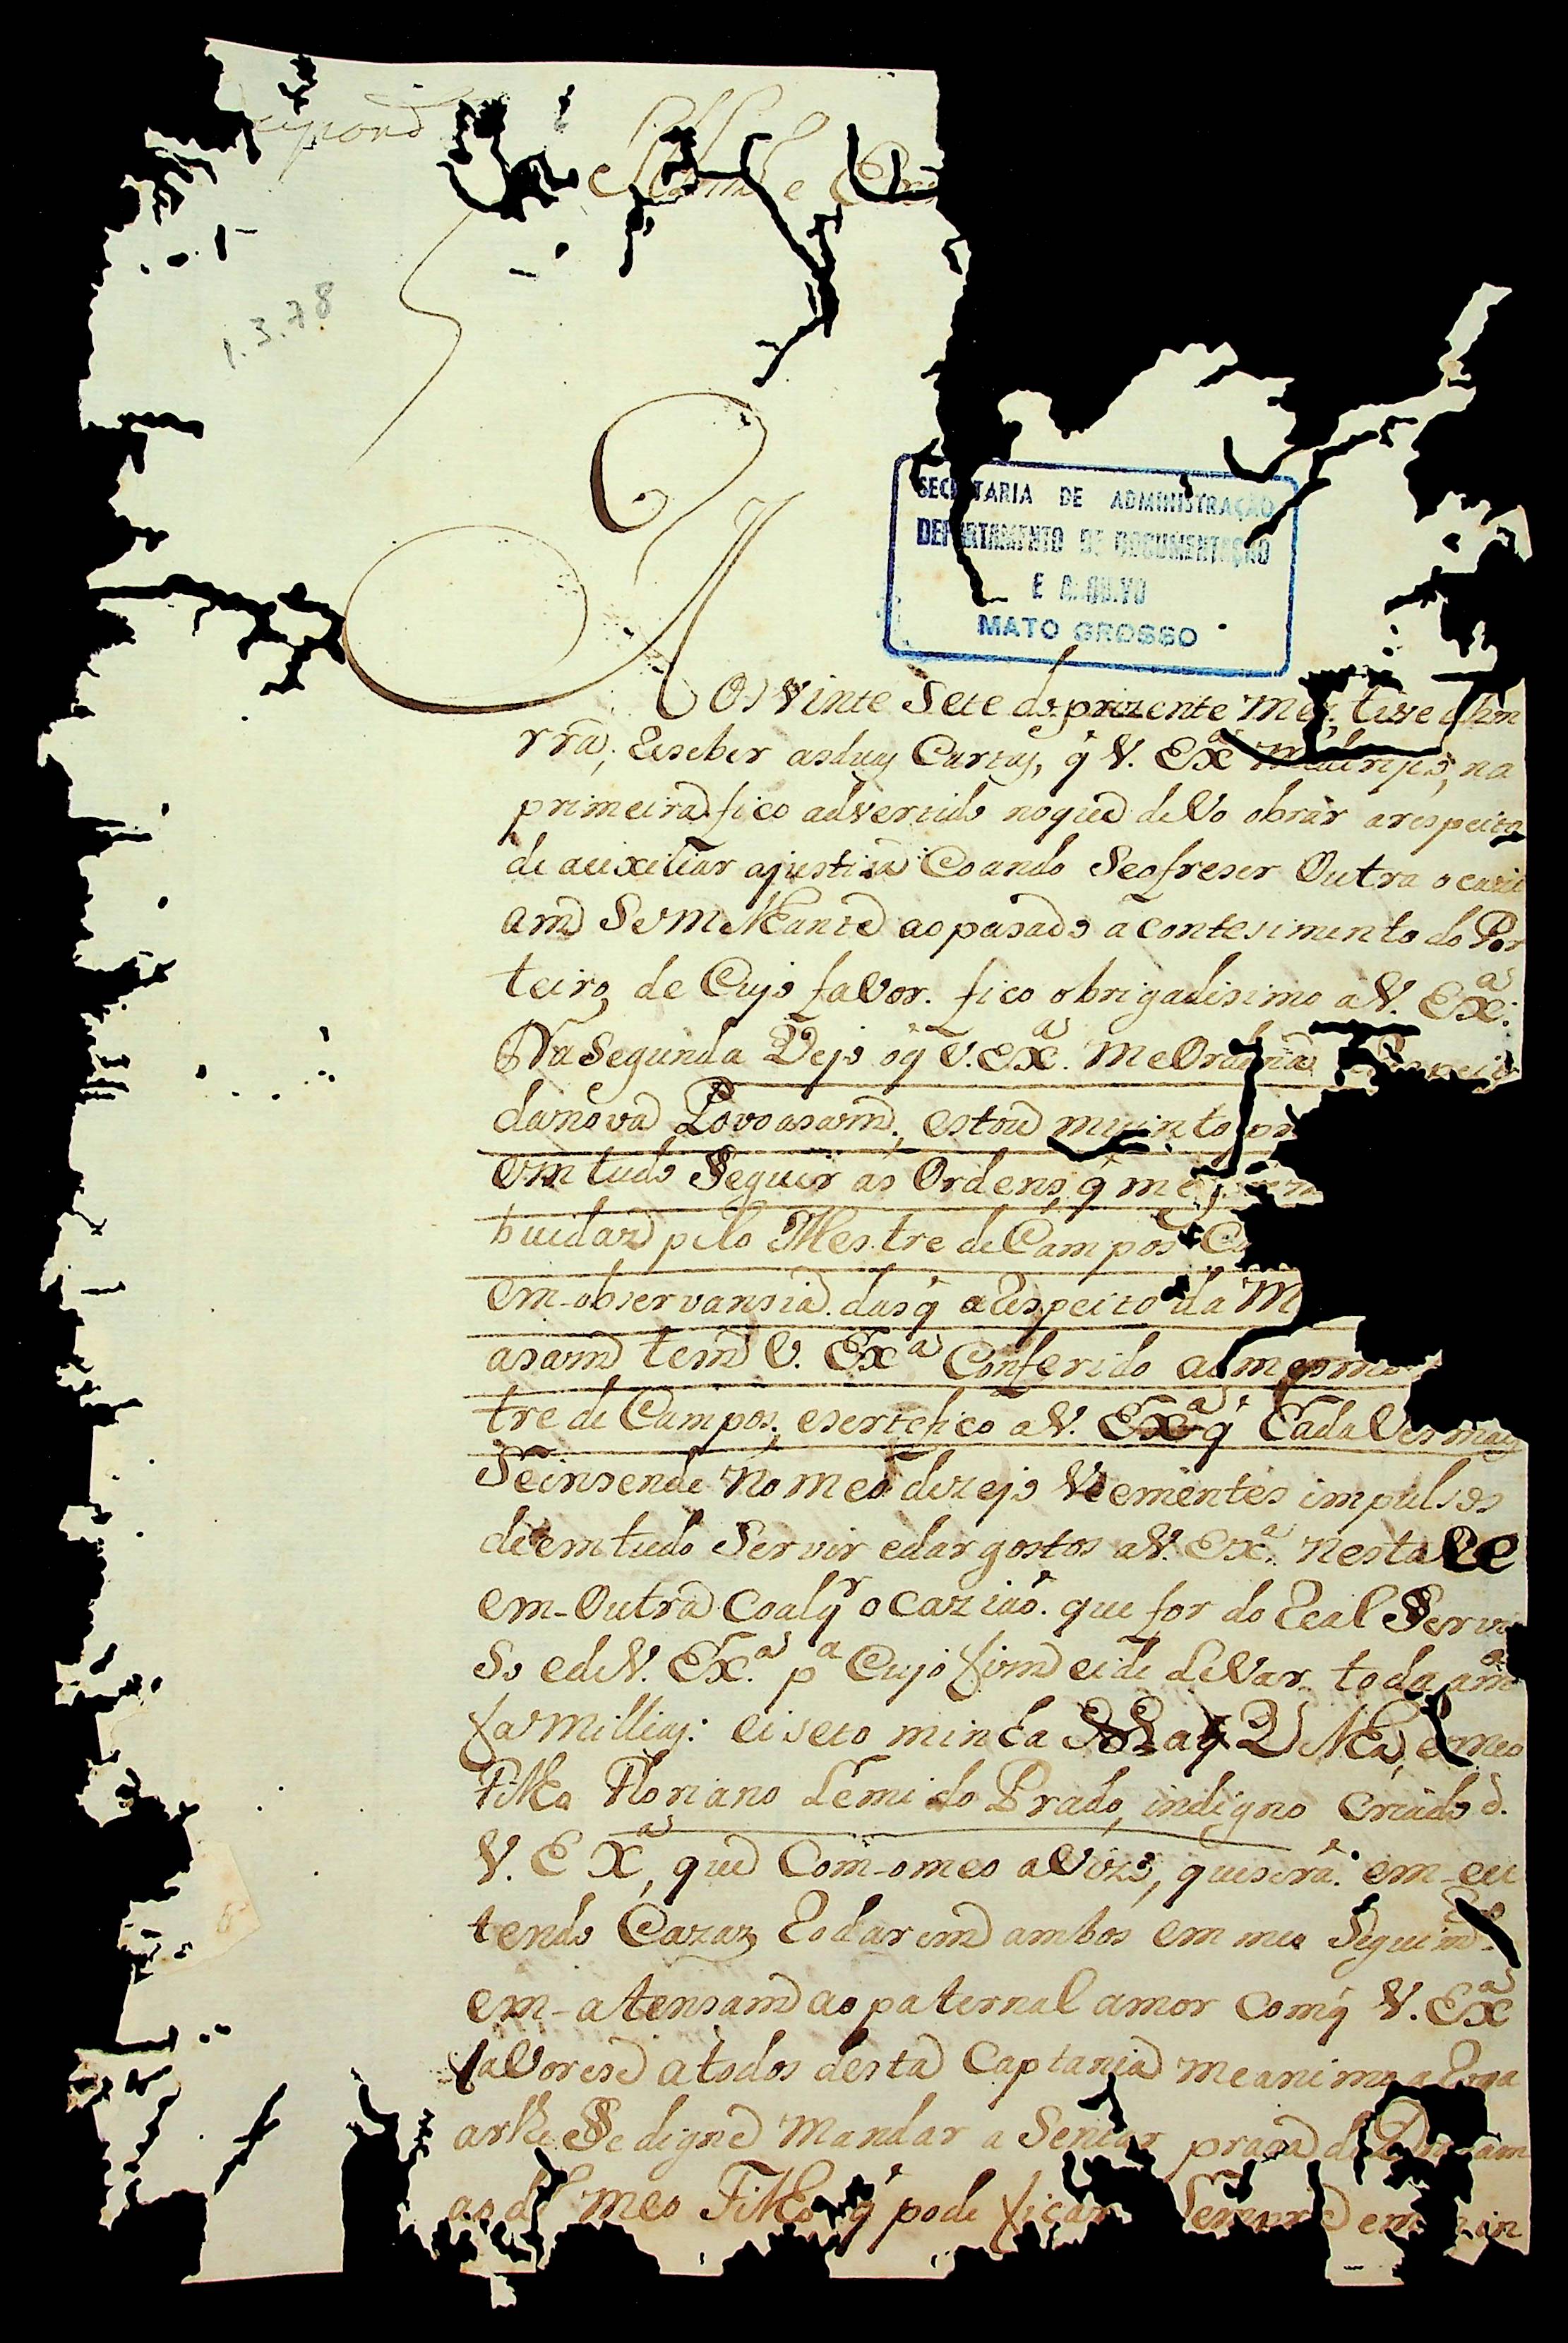 1.3.78
SECRETARIA DE ADMINISTRAÇÃO
DEPARTAMENTO DE DOCUMENTAÇÃO
E ARQUIVO
MATO GROSSO
Aos vinte Sete do prizente Mez, tive ahon
rra, Reseber asduas Cartas, q̃ V. Exa na
primeira fico advertido noque devo obrar arespeito
de auixeliar ajustisa Coando Seofreser Outra ocazi
am Semilhante aopasado acontesimento do Por
teiro, de Cujo favor. fico obrigadisimo aV. Exa.
Na Segunda Vejo oq̃ V. Exa. MeOrdena
danova Povoasam, estou muinto
em tudo Seguir as Ordens, q̃ me
buidas pelo Mestre de Campos
em-observansia. dasq̃ aRespeito da
asam tem V. Exa Conferido ao mesmo
tre de Campos, esertefico aV. Exa q̃ Cada Ves mais
Seinsende no meo dezejo Veementes impulsos
deemtudo Servir edar gostos aV. Exa. nesta Ee
em-Outra Coalqr ocazião. que for do Real Servi
So edeV. Exa. pa Cujo fim eide Levar toda am
familias: eiseto minha Mai, emeo
Filho Floriano Lemi do Prado, indigno Criado d.
V. EXa, que Com-omeo aVizo, quiserã. em-eu
tendo Cazas Rodarem ambos em meo Seguim
em-atensam ao paternal amor Comq̃ V. Exa
favorese atodos desta Captania meanimo aRoga
arlhe Se digne Mandar a Sentar praça de
ao do meo Filho q̃ pode ficar Sempre em